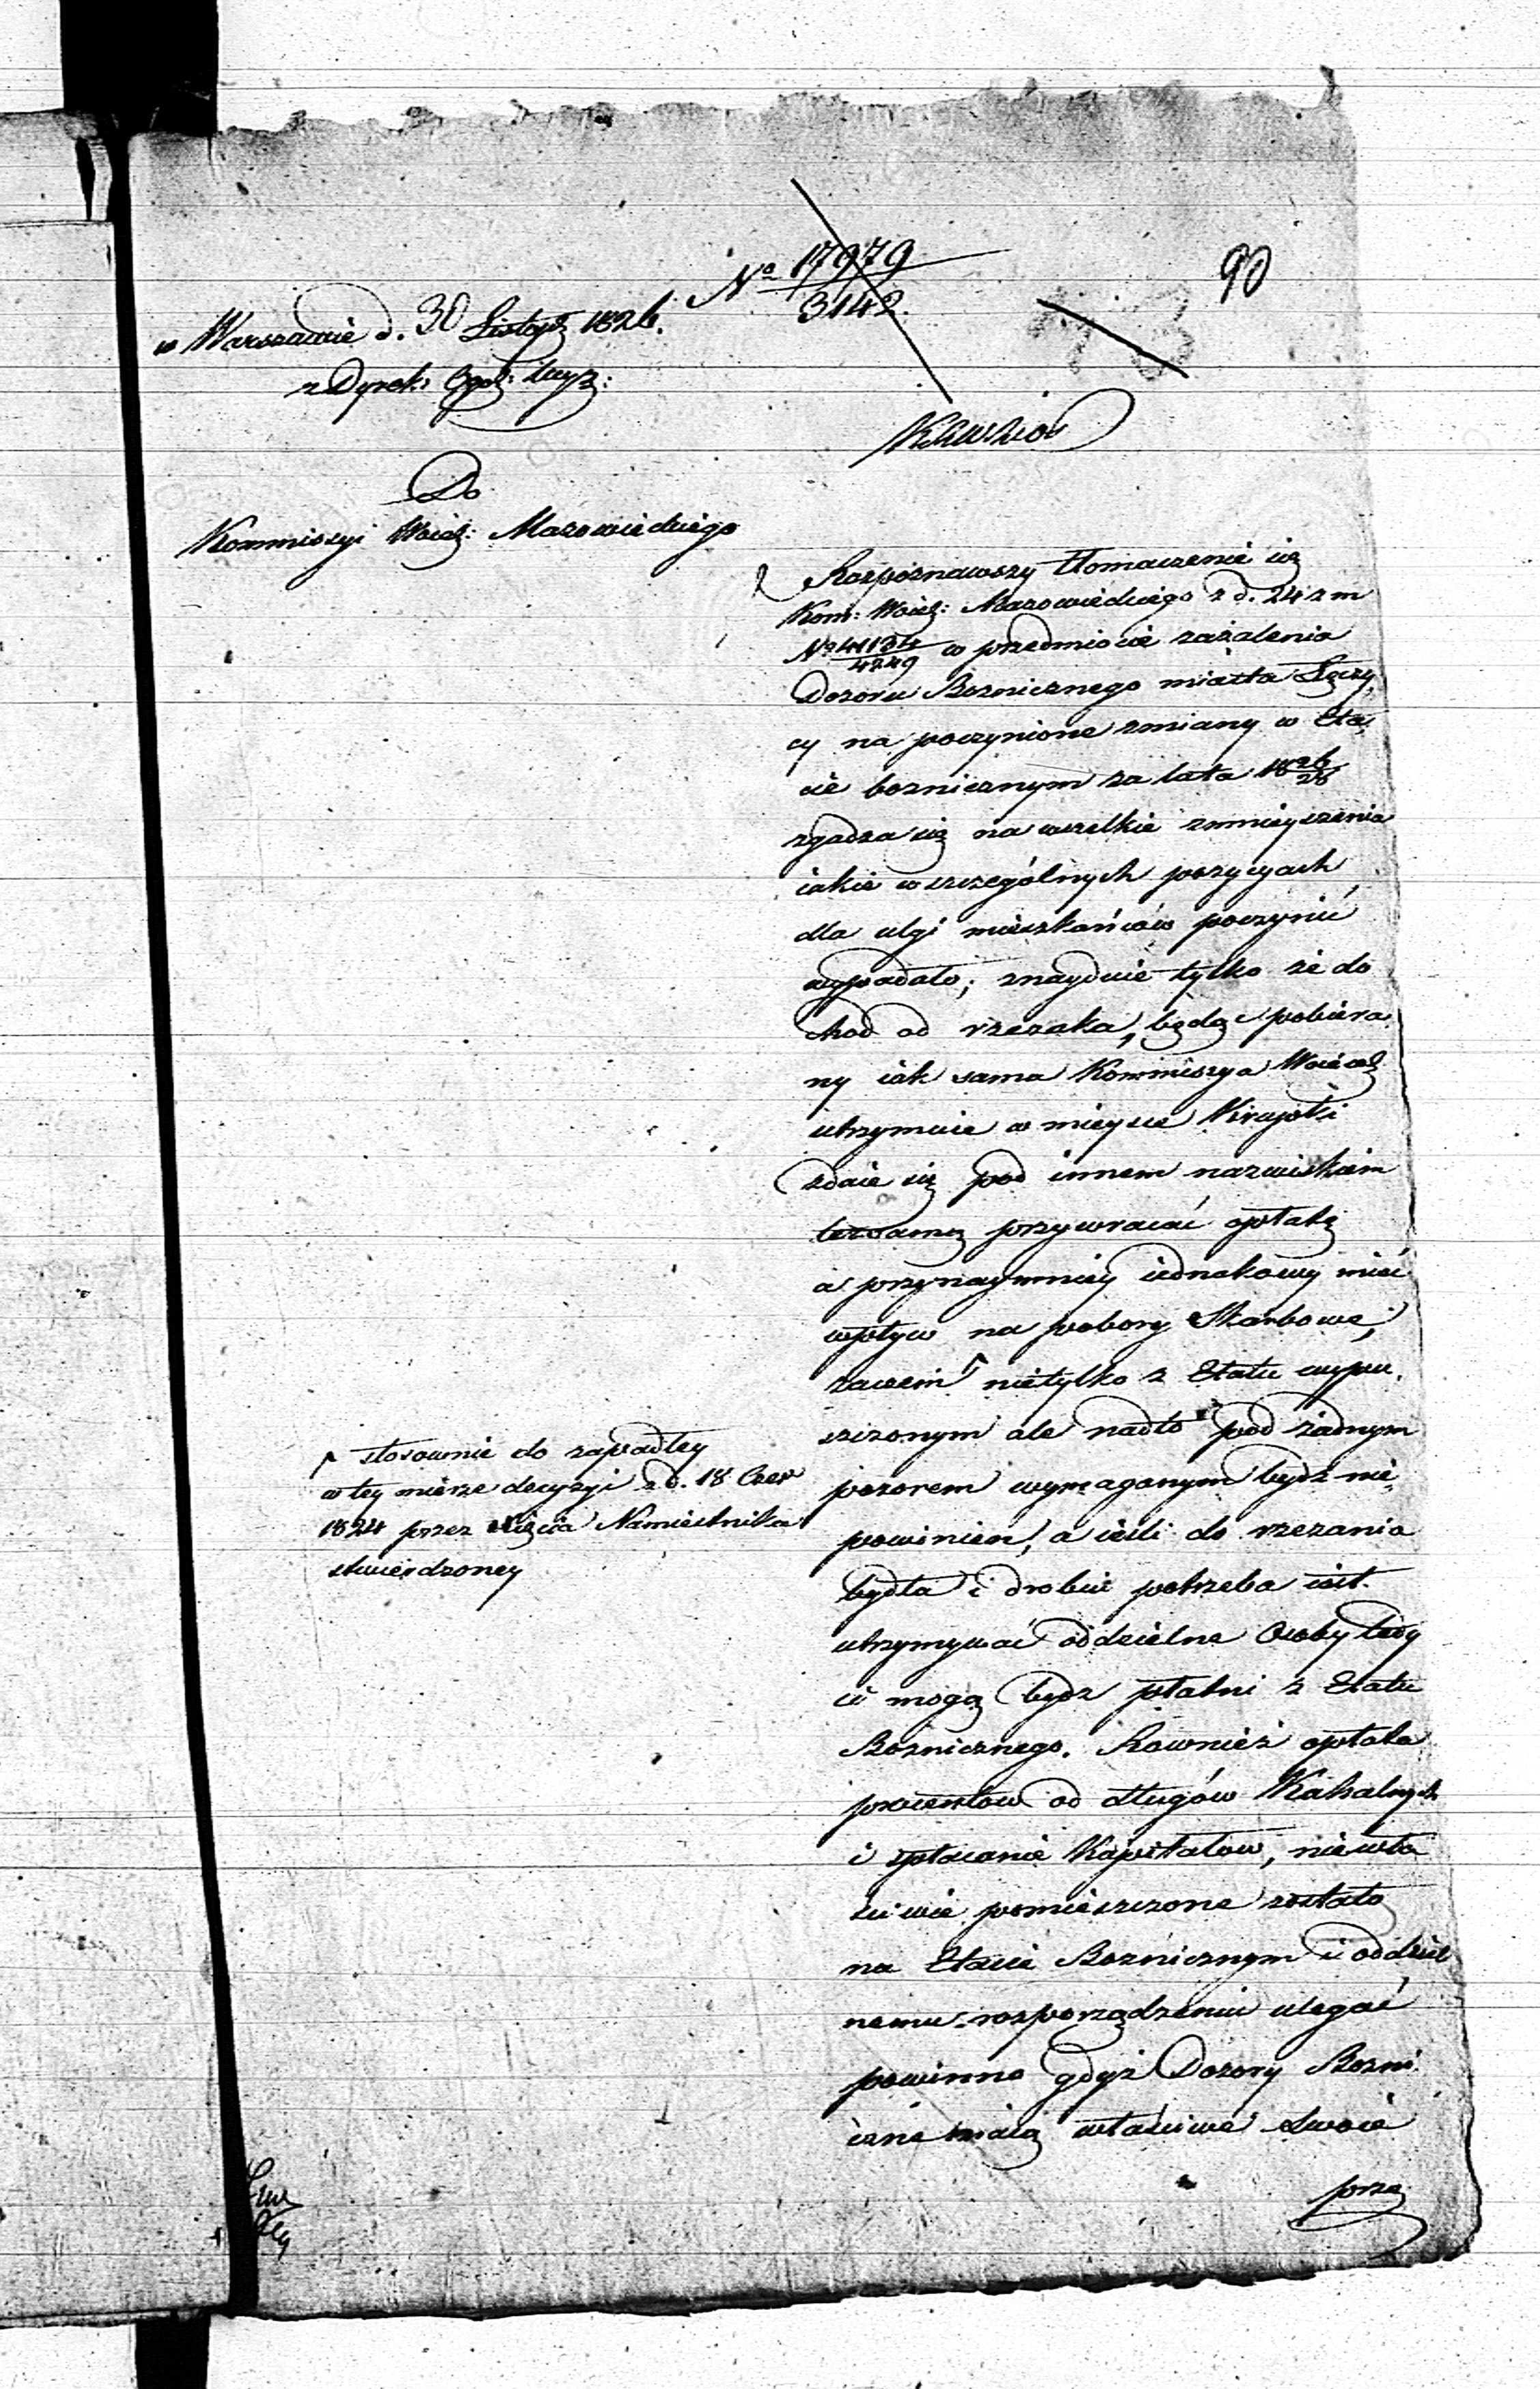 90
No 17979
3142.
w Warszawie d. 30 Listopd 1826.
z Dyrek:
Do
Kommissyi Woiedz: Mazowieckiego
Rozpoznawszy tłomaczenie się
Kom: Woiedz: Mazowieckiego z d. 24 z m
No 41134/4249 w przedmiocie zażalenia
Dozoru Boznicznego miasta Łęczy
cy na poczynione zmiany w Eta
cie boznicznym za lata 1826/28
zgadza się na wszelkie zmnieyszenia
iakie w szczególnych pozycyach
dla ulgi mieszkańców poczynić
wypadało; znayduie tylko że do
chod od rzezaka, będąc pobiera
ny iak sama Kommissya Woiewdz
utrzymuie w mieysce Krupki
zdaie się pod innem nazwiskiem
też samę przywracać opłatę
a przynaymniey iednakowy mieć
wpływ na pobory Skarbowe,
zaczem nietylko z Etatu wypu
szczonym ale nadto pod żadnym
pozorem wymaganym bydź nie
powinien, a ieśli do rzezania
bydła i drobiu potrzeba iest
utrzymywać oddzielne Osoby tedy
ci mogą bydz płatni z Etatu
Boznicznego. Rownież opłata
procentow od długów Kahalnych
i spłacanie Kapitałow, niewła
ściwie pomieszczone zostało
na Etacie Boznicznym i oddziel
nemu rozporządzeniu ulegać
powinno gdyż Dozory Bozni
czne maią właściwe swoie
prze
stosownie do zapadłey
w tey mierze decyzyi z d. 18 Czer
1824 przez Xięcia Namiestnika
stwierdzoney